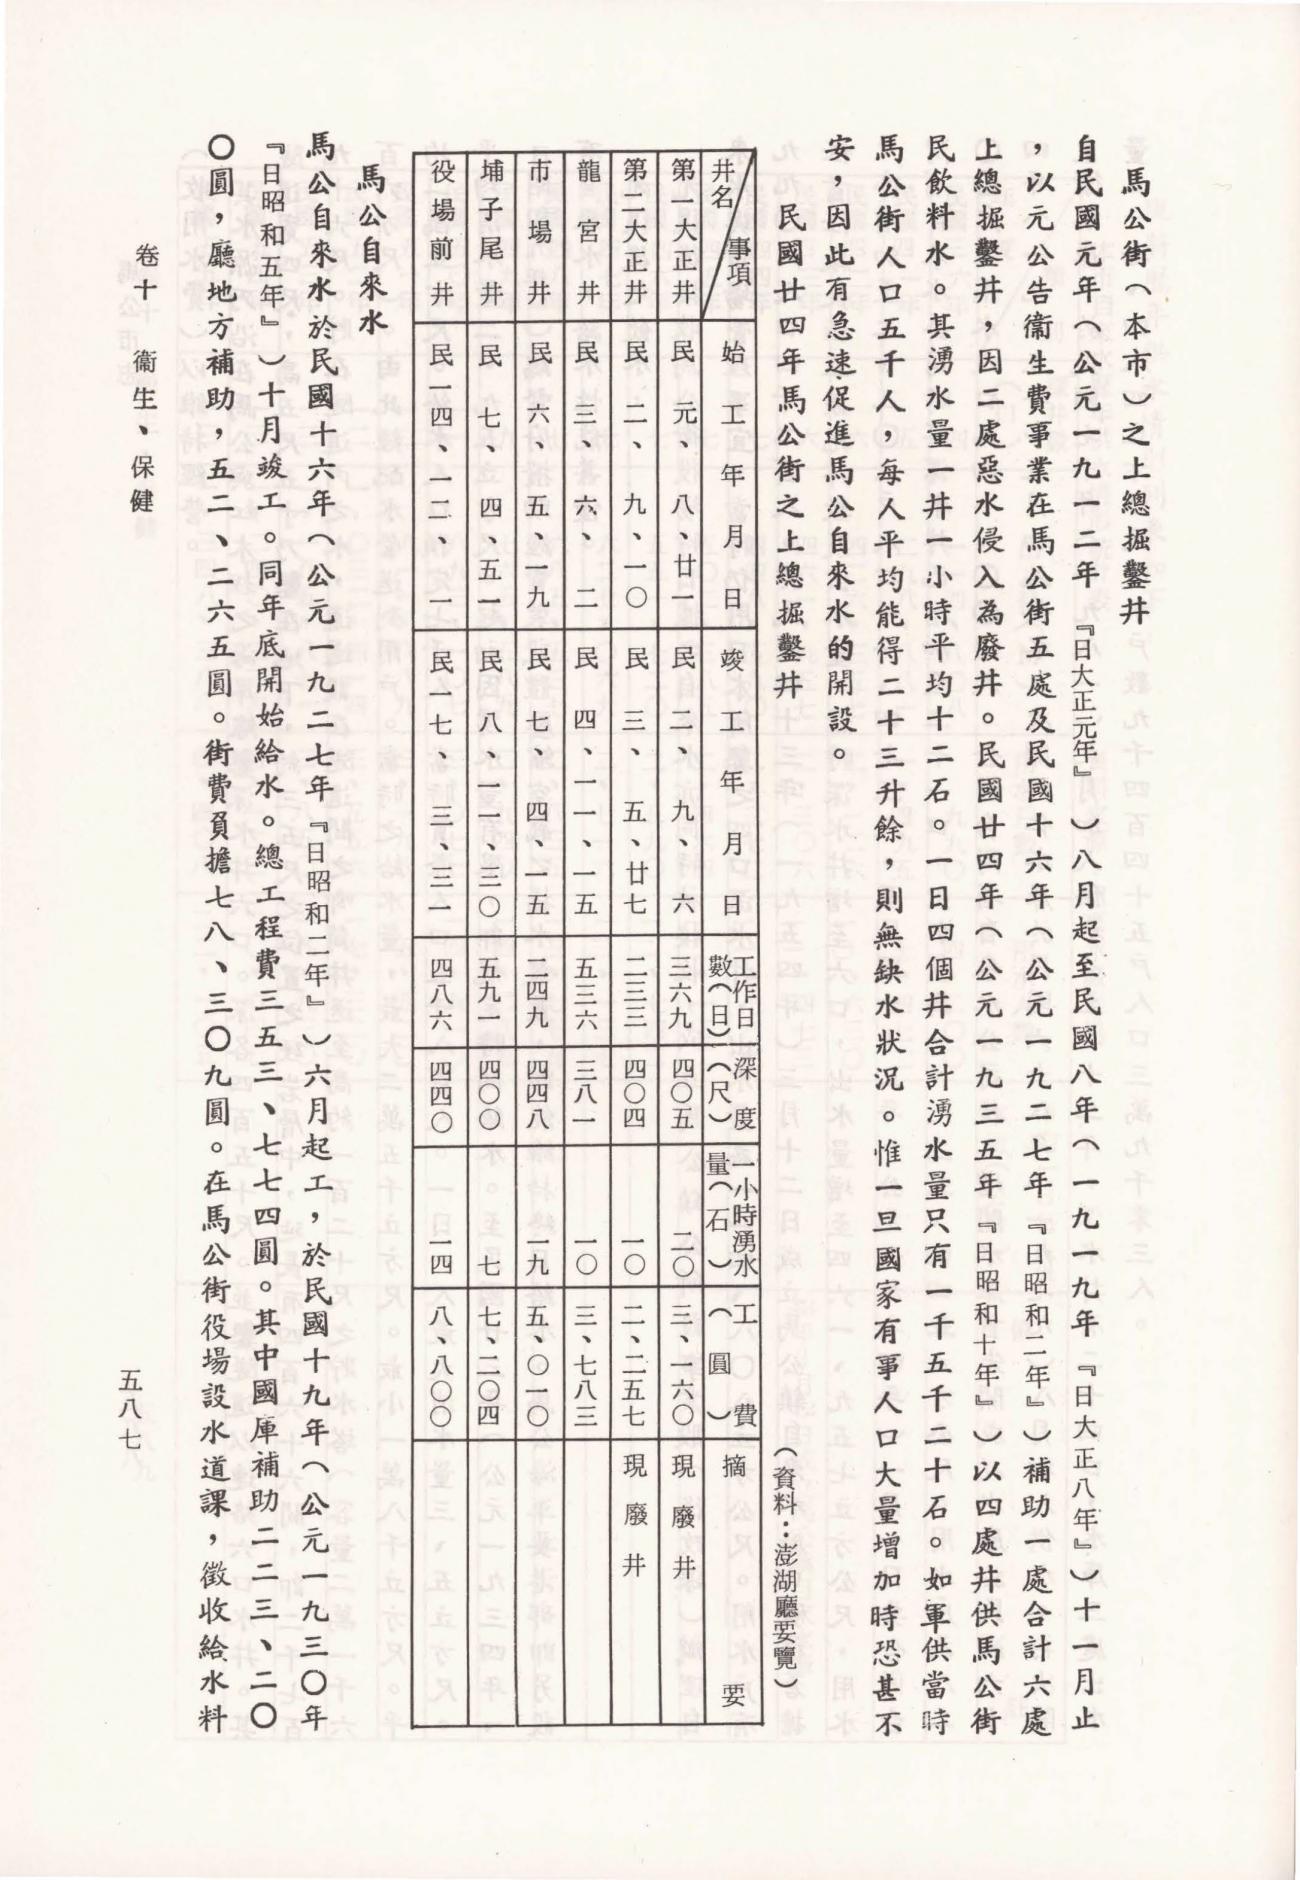 馬公街(本市)之上總掘鑿井
自民國元年(公元一九一二年『日大正元年』)八月起至民國八年(一九一九年『日大正八年』)十一月止
,以元公告衞生費事業在馬公街五處及民國十六年(公元一九二七年『日昭和二年』)補助一處合計六處
上總掘鑿井,因二處惡水侵入為廢井。民國廿四年(公元一九三五年『日昭和十年』)以四處井供馬公街
民飲料水。其湧水量一井一小時平均十二石。一日四個井合計湧水量只有一千五千二十石。如軍供當時
馬公街人口五千人,每人平均能得二十三升餘,則無缺水狀況。惟一旦國家有事人口大量增加時恐甚不
安,因此有急速促進馬公自來水的開設。
民國廿四年馬公街之上總掘鑿井
(資料:澎湖廳要覽)
井名 事項 始工年月日 竣工年月日 工作日數(日) 深度(尺) 一小時湧水量(石) 工費(圓) 摘要
第一大正井 民元、八、廿一 民二、九、六 三六九 四〇五 二〇 三、一六〇 現廢井
第二大正井 民二、九、一〇 民三、五、廿七 二三三 四〇四 一〇 二、二五七 現廢井
龍宮井 民三、六、二 民四、一一、一五 五三六 三八一 一〇 三、七八三
市場井 民六、五、一九 民七、四、一五 二四九 四四八 一九 五、〇一〇
埔子尾井 民七、四、五一 民八、一一、三〇 五九一 四〇〇 七 七、二〇四
役場前井 民一四、一二、一 民一七、三、三一 四八六 四四〇 一四 八、八〇〇
馬公自來水
馬公自來水於民國十六年(公元一九二七年『日昭和二年』)六月起工,於民國十九年(公元一九三〇年
『日昭和五年』)十月竣工。同年底開始給水。總工程費三五三、七七四圓。其中國庫補助二二三、二〇
〇圓,廳地方補助,五二、二六五圓。街費負擔七八、三〇九圓。在馬公街役場設水道課,徵收給水料
卷十 衞生、保健
五八七